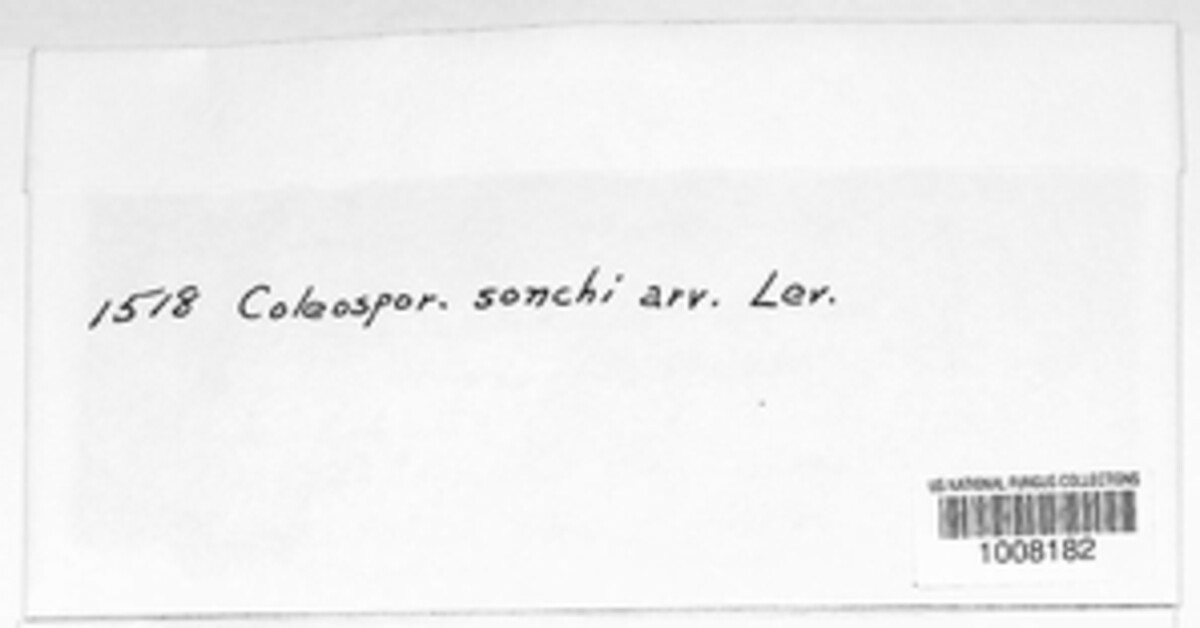 1518 Coleospor. sonchi arv. Lev.
US NATIONAL FUNGUS COLLECTIONS
1008182